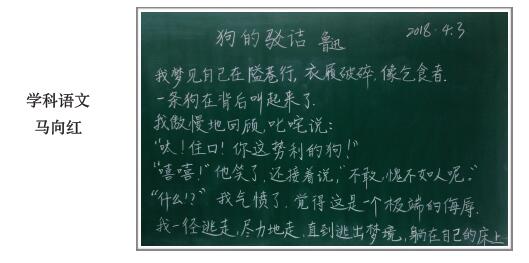 学科语文
马向红
狗的驳诘 鲁迅 2018.4.3
我梦见自己在隘巷行,衣履破碎,像乞食者.
一条狗在背后叫起来了.
我傲慢地回顾,叱咤说:
"呔!住口!你这势利的狗!"
"嘻嘻!"他笑了,还接着说,"不敢,愧不如人呢。"
"什么!?"我气愤了,觉得这是一个极端的侮辱.
我一径逃走,尽力地走,直到逃出梦境,躺在自己的床上